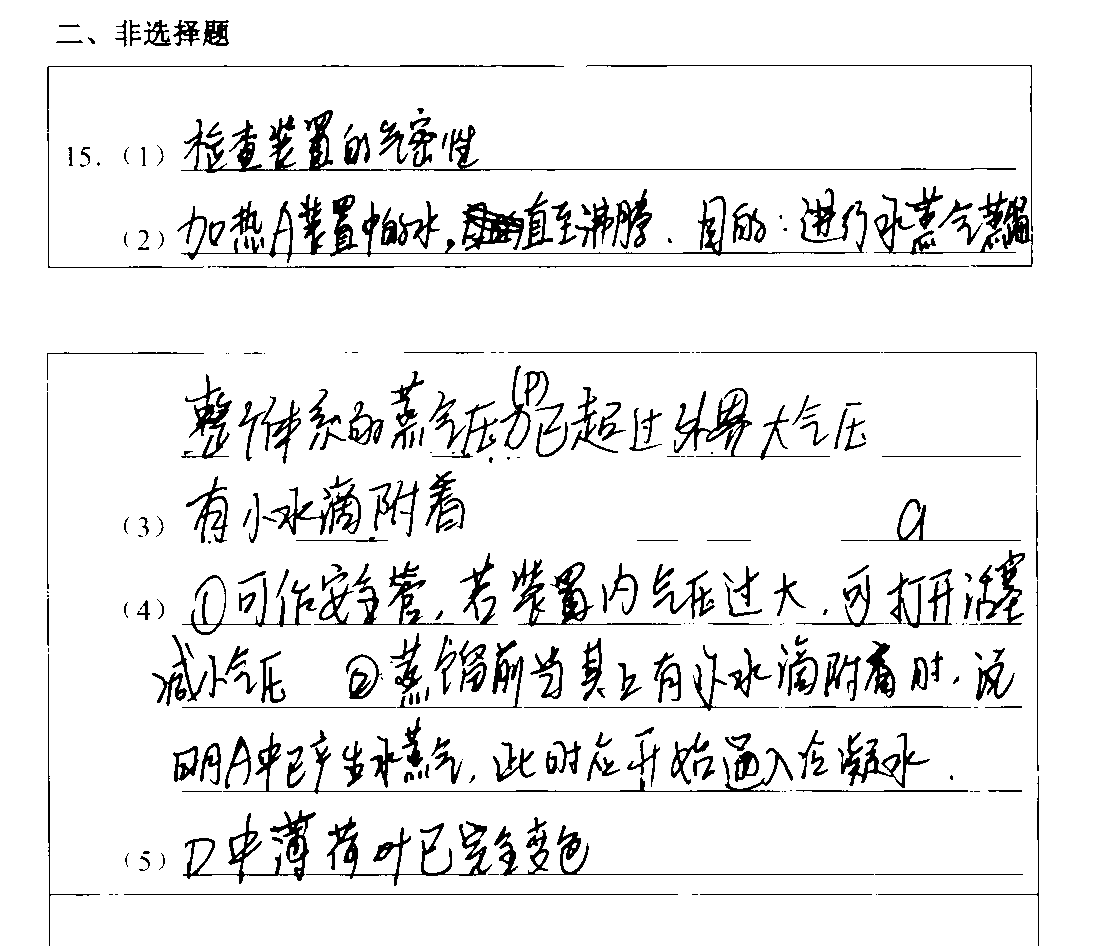 二、非选择题
15.（1）检查装置的气密性
（2）加热A装置中的水，直至沸腾．目的：进行水蒸气蒸馏
整个体系的蒸气压(P)已超过外界大气压
（3）有小水滴附着 a
（4）①可作安全管，若装置内气压过大，可打开活塞
减小气压 ②蒸馏前当其上有小水滴附着时，说
明A中已产生水蒸气，此时应开始通入冷凝水．
（5）D中薄荷叶已完全变色